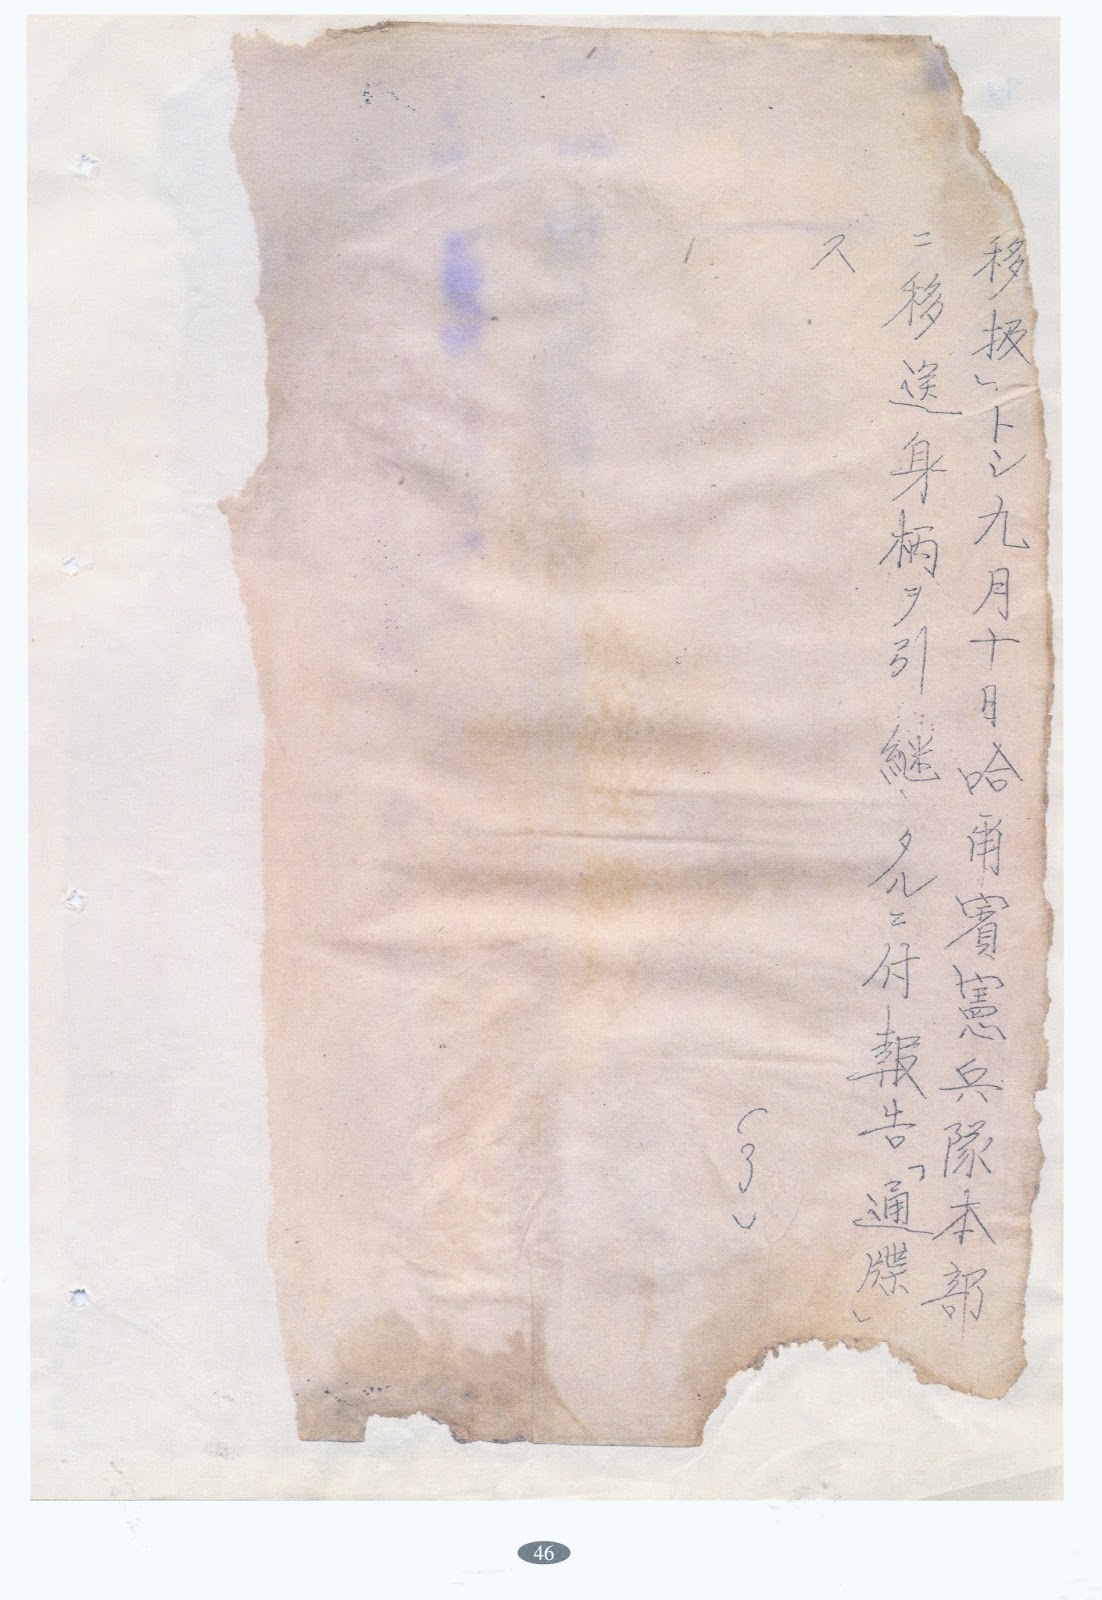 移扱」トシ九月十日哈爾賓憲兵隊本部
ニ移送身柄ヲ引継タルニ付報告「通牒」
ス
(了)
46